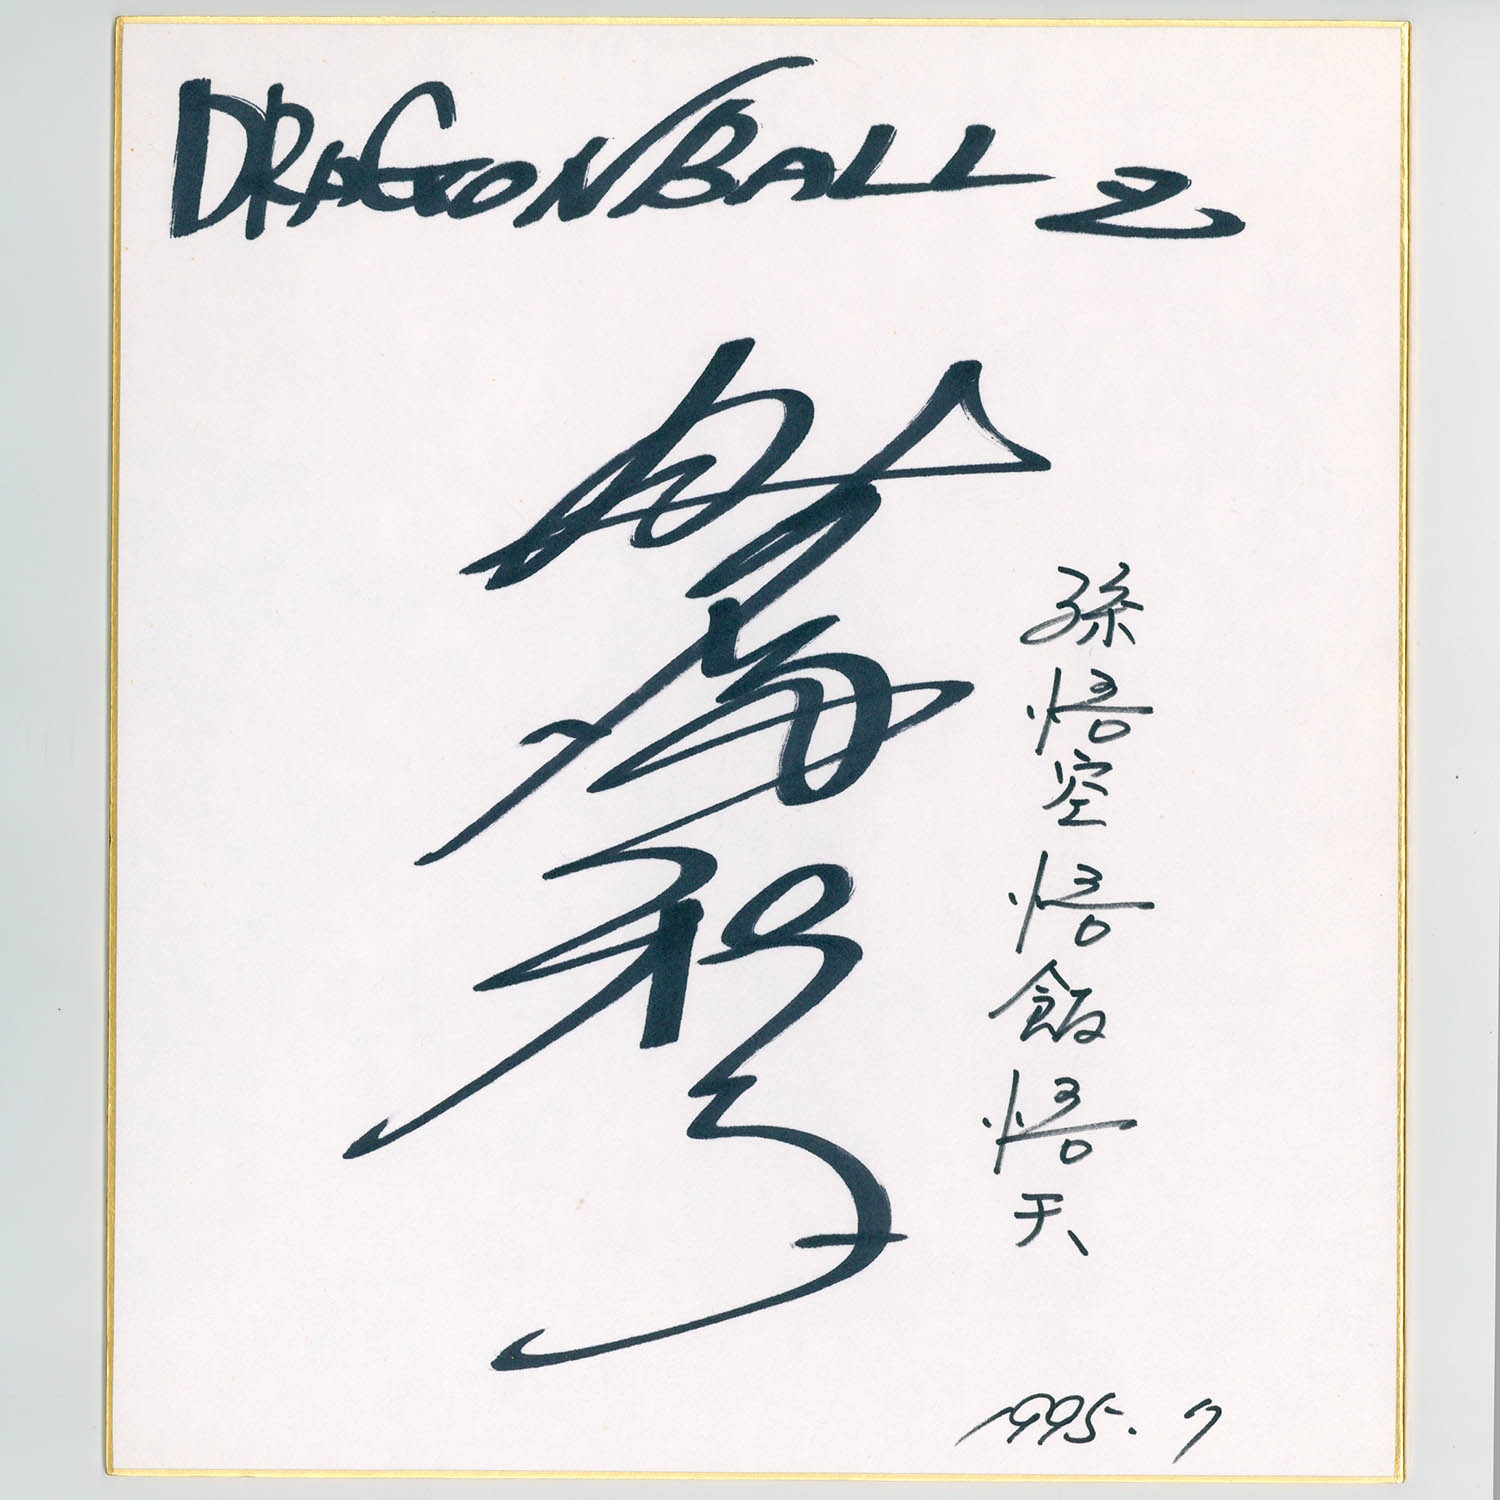 DRAGONBALL Z
孫悟空 悟飯 悟天
1995.7